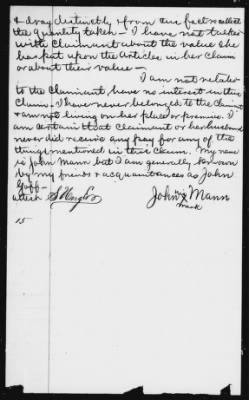 & drag distinctly & from our fact recollect
the quantity taken – I have not talked
with Claimant about the value she
has put upon the Articles in her Claim
or about their value –
I am not related
to the Claimant, have no interest in this
Claim. I have never belonged to the Claimant
& am not living on her place or premise. I
am certain that Claimant or her husband
never did receive any pay for any of the
things mentioned in this Claim. My name
is John Mann but I am generally known
by my friends & acquaintances as John
Goff –
attest
his
John X Mann
mark
15